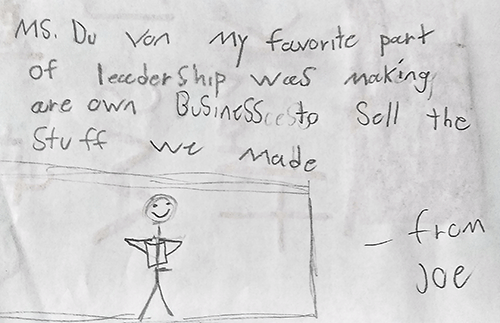 Ms. Du Von My favorite part
of leadership was making
are own Business to Sell the
Stuff we Made
– from
Joe